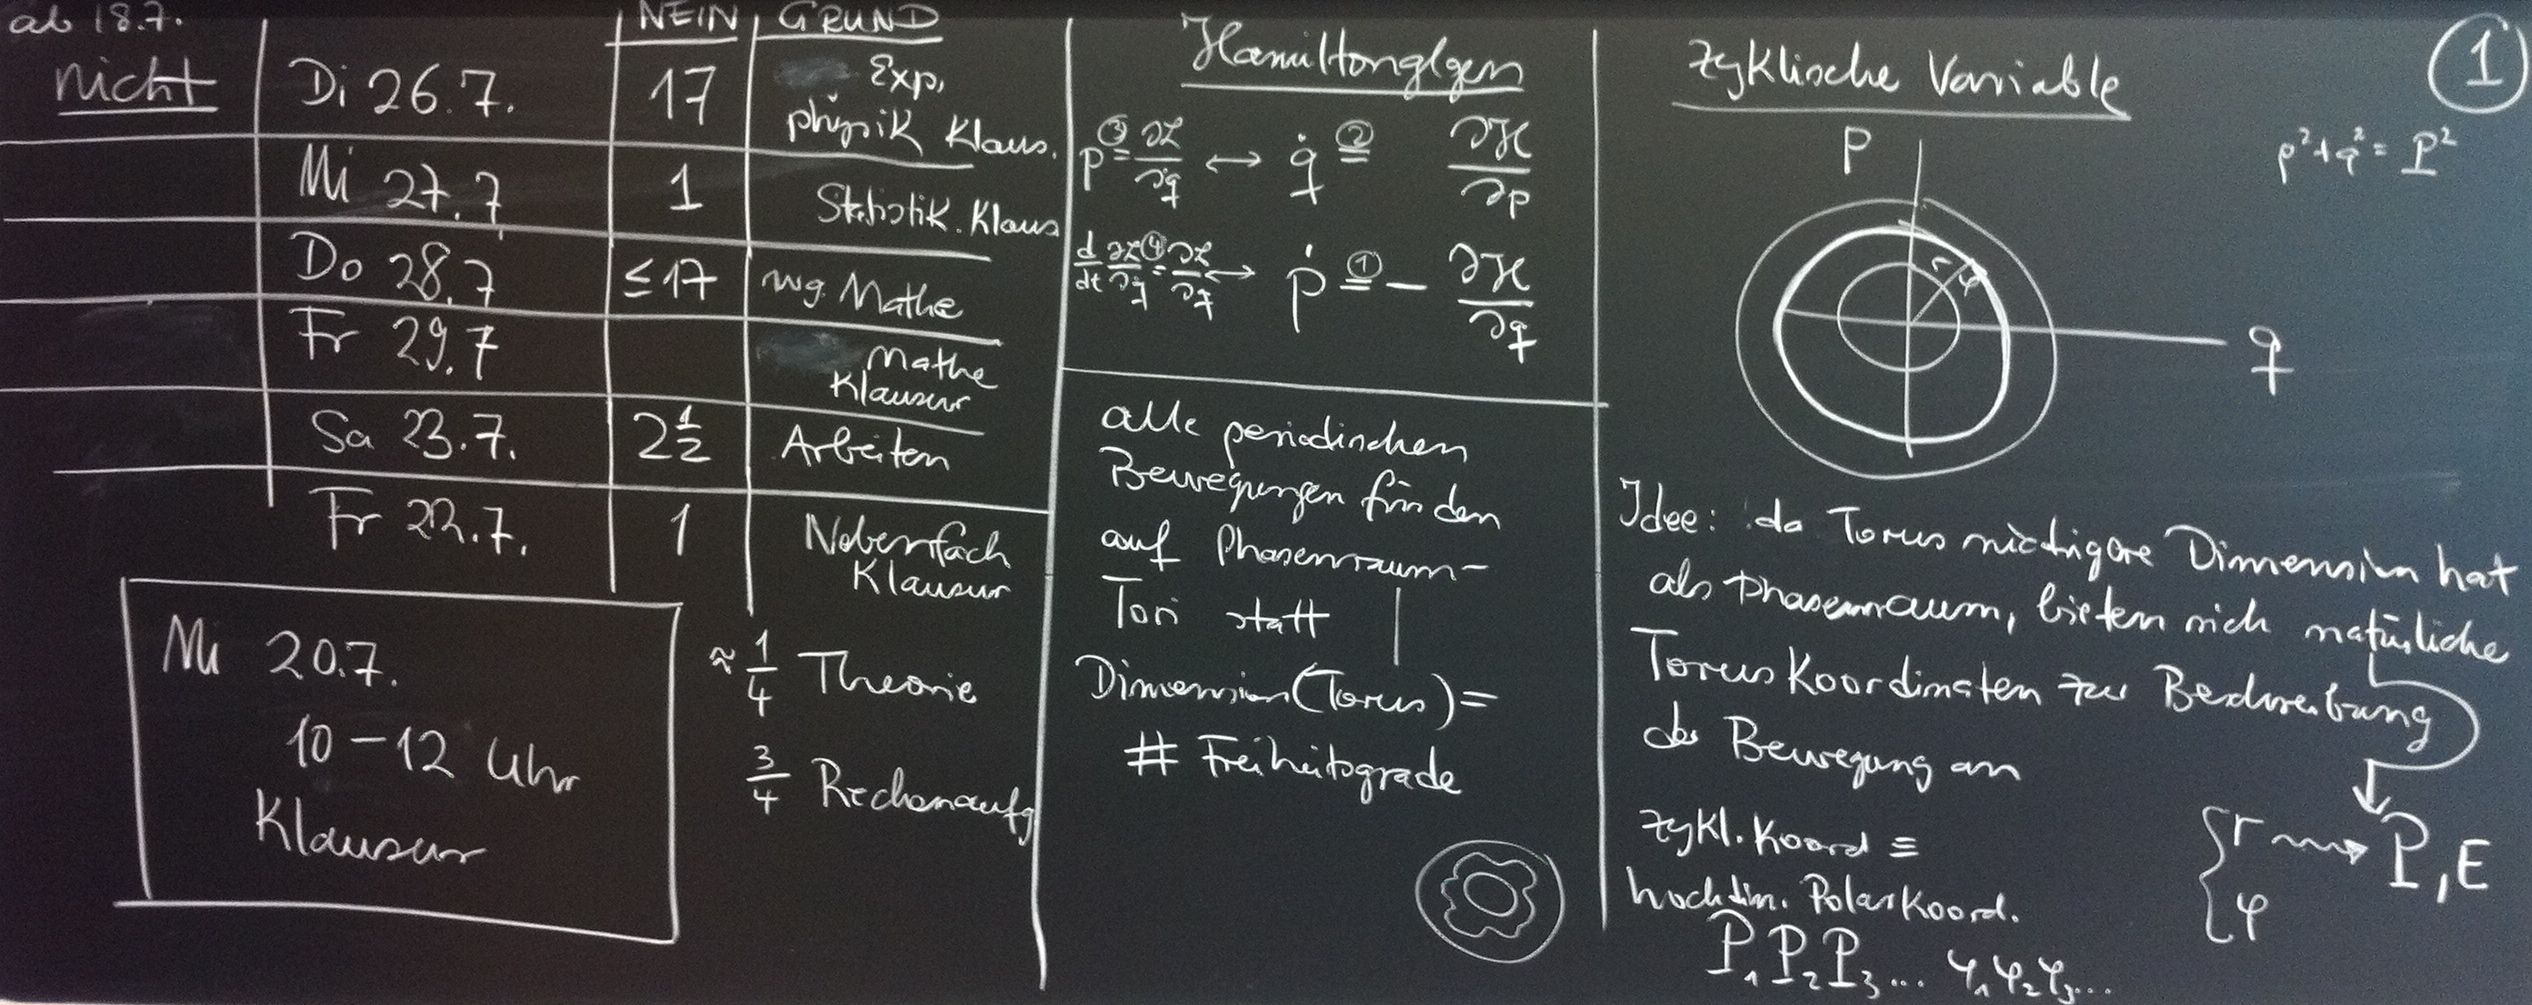 ab 18.7.
nicht
NEIN GRUND
Di 26.7. 17 Exp.
physik Klaus.
Mi 27.7 1 Statistik. Klaus
Do 28.7 ≤17 wg. Mathe
Fr 29.7 Mathe
Klausur
Sa 23.7. 2 1/2 Arbeiten
Fr 22.7. 1 Nebenfach
Klausur
Mi 20.7.
10–12 Uhr
Klausur
≈ 1/4 Theorie
3/4 Rechenaufg
Hamiltonglgen
p ③= ∂L/∂q̇ ↔ q̇ ②= ∂H/∂p
d/dt ∂L/∂q̇ ④= ∂L/∂q ↔ ṗ ①= − ∂H/∂q
alle periodischen
Bewegungen finden
auf Phasenraum-
Tori statt
Dimension(Torus) =
# Freiheitsgrade
Zyklische Variable
①
p²+q² = P²
P
r φ
q
Idee: da Torus niedrigere Dimension hat
als Phasenraum, bieten sich natürliche
Torus Koordinaten zur Beschreibung
der Bewegung an
zykl. Koord ≡
hochdim. Polarkoord.
P₁ P₂ P₃ ... φ₁ φ₂ φ₃ ...
{ r → P, E
φ